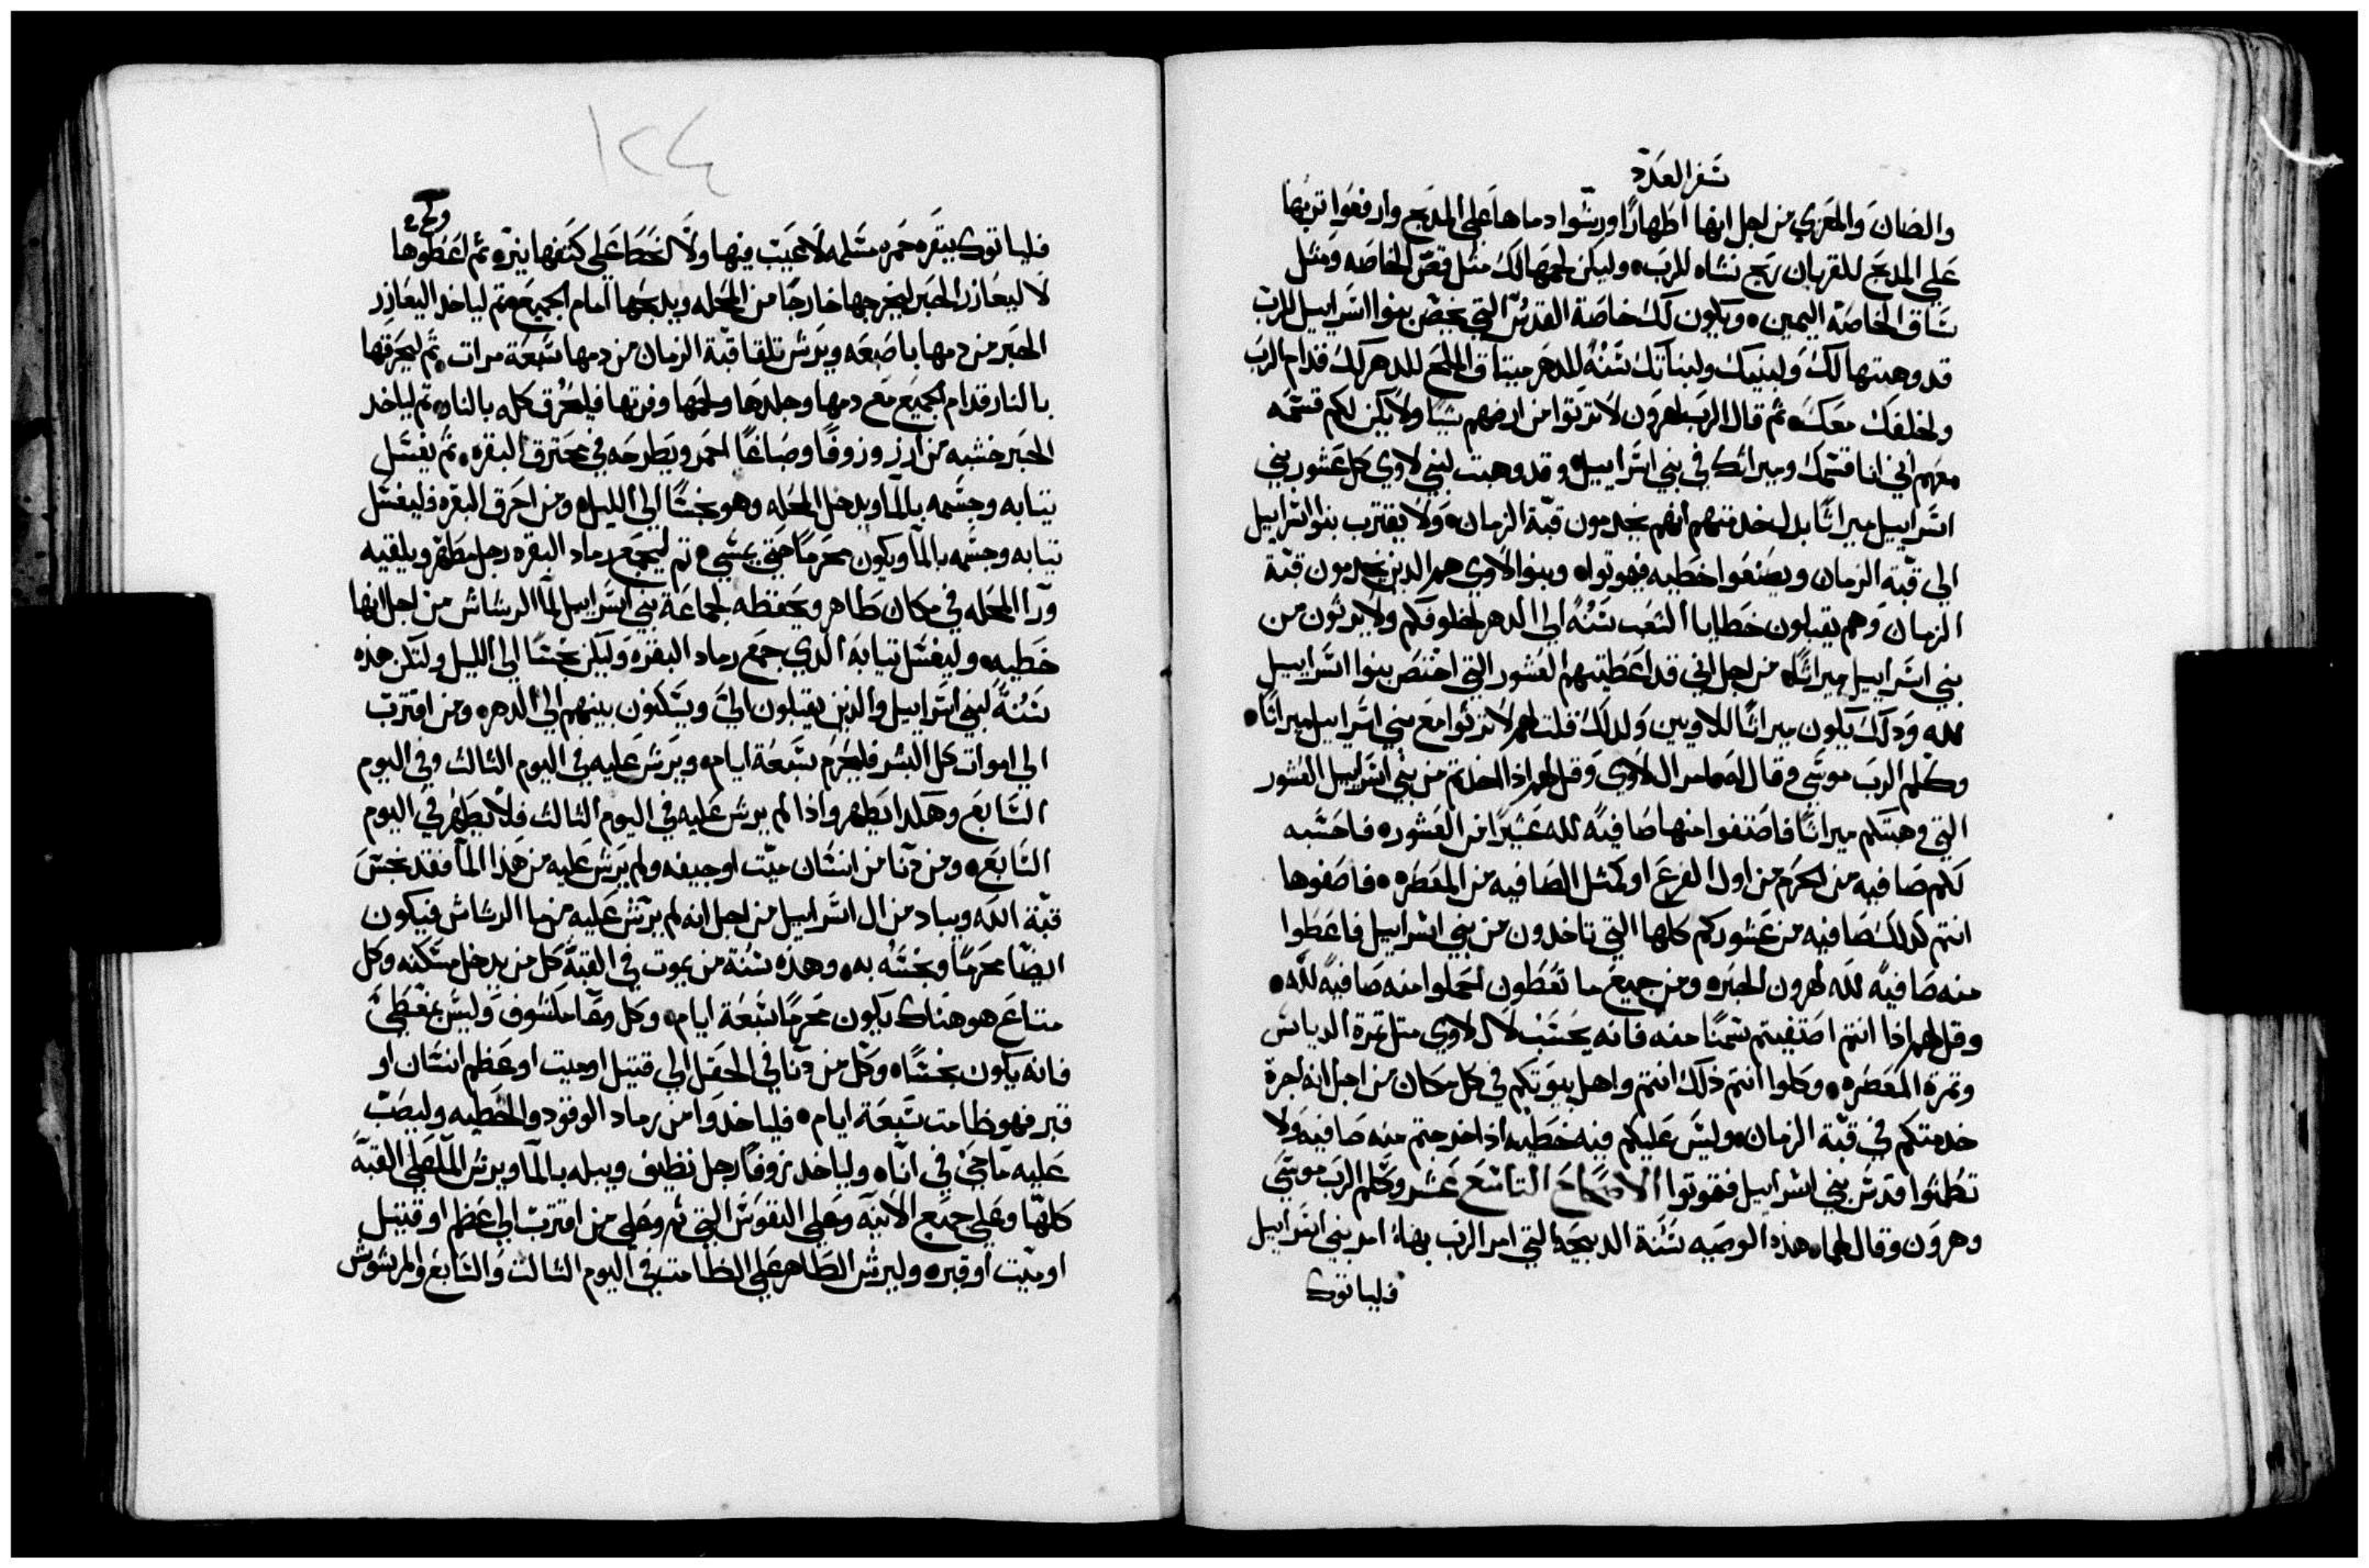 سفر العدد
والضان والمعزي من اجل انها اطهارًا ورشوا دماها على المدبح وارفعوا تربها
على المدبح للقربان ريح نشاه للرب، وليكن لحمها لك مثل قص الخاصه ومثل
ساق الخاصة اليمين، ويكون لك خاصة القدس التي يخص بنوا اسراييل للرب
قد وهبتها لك ولبنيك ولبناتك سنةً للدهر ميتاق الملح للدهر لك قدام الرب
ولخلفك معك، ثم قال الرب لهرون لا ترتوا من ارضهم شيا ولا يكن لكم قسمه
معهم اني انا قسمك وميراثك في بني اسراييل، وقد وهبت لبني لاوي كل عشور بني
اسراييل ميراثًا بدل خدمتهم انهم يخدمون قبة الزمان، ولا يقترب بنوا اسراييل
الي قبة الزمان ويصنعوا خطيه فيموتوا، وبنوا لاوي هم الدين يخدمون قبة
الزمان وهم يقبلون خطايا الشعب سنةً الي الدهر لخلوفكم ولا يرتون من
بني اسراييل ميراثًا، من اجل اني قد اعطيتهم العشور التي اختص بنوا اسراييل
لله ودلك يكون ميراثًا للاويين ولدلك قلت لهم لا ترثوا مع بني اسراييل ميراثًا،
وكلم الرب موسي وقال له مر ال لاوي وقل لهم اذا اخدتم من بني اسراييل العشور
التي وهبتكم ميراثًا فاصتفوا منها صافيةً لله عشيرًا من العشور، فاحسبه
لكم صافيه من الكرم من اول الفرع او كمثل الصافيه من المعصره، فاصفوها
انتم كدلك صافيه من عشوركم كلها التي تاخدون من بني اسراييل فاعطوا
منه صافيةً لله لهرون الحبر، ومن جميع ما تعطون احملوا منه صافيةً لله،
وقل لهم اذا انتم اصتفيتم سمنًا منه فانه يحسب لال لاوي مثل تمرة الدياس
وتمرة المعصره، وكلوا انتم ذلك انتم واهل بيوتكم في كل مكان من اجل انه اجرة
خدمتكم في قبة الزمان، وليس عليكم فيه خطيه اذا اخرجتم منه صافيه ولا
تطمثوا قدس بني اسراييل فتموتوا الاصحاح التاسع عشر وكلم الرب موسي
وهرون وقال لهما، هذه الوصيه سنة الدبيحة التي امر الرب بها، امر بني اسراييل
فلياتوك
١٢٤
فلياتوك ببقره حمره مسلمه لا عيب فيها ولا لخطا على كتفها نيره ثم اعطوها
لا ليعازر الحبر ليخرجها خارجًا من المحله ويدبحها امام الجميع، ثم لياخد اليعازر
الحبر من دمها باصبعه ويرش تلقا قبة الزمان من دمها سبعة مرات، ثم ليحرقها
بالنار قدام الجميع مع دمها وجلدها ولحمها وفرتها فليحرق كله بالنار، ثم لياخد
الحبر خشبه من ارز وزوفًا وصباغًا احمر ويطرحه في محترق البقره، ثم يغسل
تيابه وجسمه بالما ويدخل المحله وهو نجسًا الي الليل، ومن احرق البقره فليغسل
تيابه وجسمه بالما ويكون محرمًا حتي يمسي، ثم ليجمع رماد البقره رجل مطهر ويلقيه
ورا المحله في مكان طاهر ويحفظه لجماعة بني اسراييل لما الرشاش من اجل انها
خطيه، وليغسل تيابه الدي جمع رماد البقره وليكن نجسًا الي الليل ولتكن هذه
سنةً لبني اسراييل والذين يقبلون الي ويسكنون بينهم الي الدهر، ومن اقترب
الي اموات كل البشر فليحرم سبعة ايام، ويرش عليه في اليوم الثالث وفي اليوم
السابع وهكدا يطهر واذا لم يرش عليه في اليوم الثالث فلا يطهر في اليوم
السابع، ومن دنا من انسان ميت او جيفه ولم يرش عليه من هذا الما فقد نجس
قبة الله ويباد من ال اسراييل من اجل انه لم يرش عليه من ما الرشاش فيكون
ايضًا محرمًا ونجسه به، وهذه سنة من يموت في القبة كل من يدخل مسكنه وكل
متاع هو هناك يكون محرمًا سبعة ايام، وكل وعا مكشوف وليس مغطي
فانه يكون نجسًا، وكل من دنا في الحقل الي قتيل او ميت او عظم انسان او
قبر فهو طامت سبعة ايام، فلياخدوا من رماد الوقود والخطيه وليصب
عليه ما حي في اناه، ولياخد زوفًا رجل نظيف ويبله بالما ويرش الما على القبه
كلها وعلي جميع الانيه وعلي النفوس التي ثم وعلي من اقترب الي عظم او قتيل
او ميت او قبر، وليرش الطاهر علي الطامت في اليوم الثالت والسابع والمرشوش